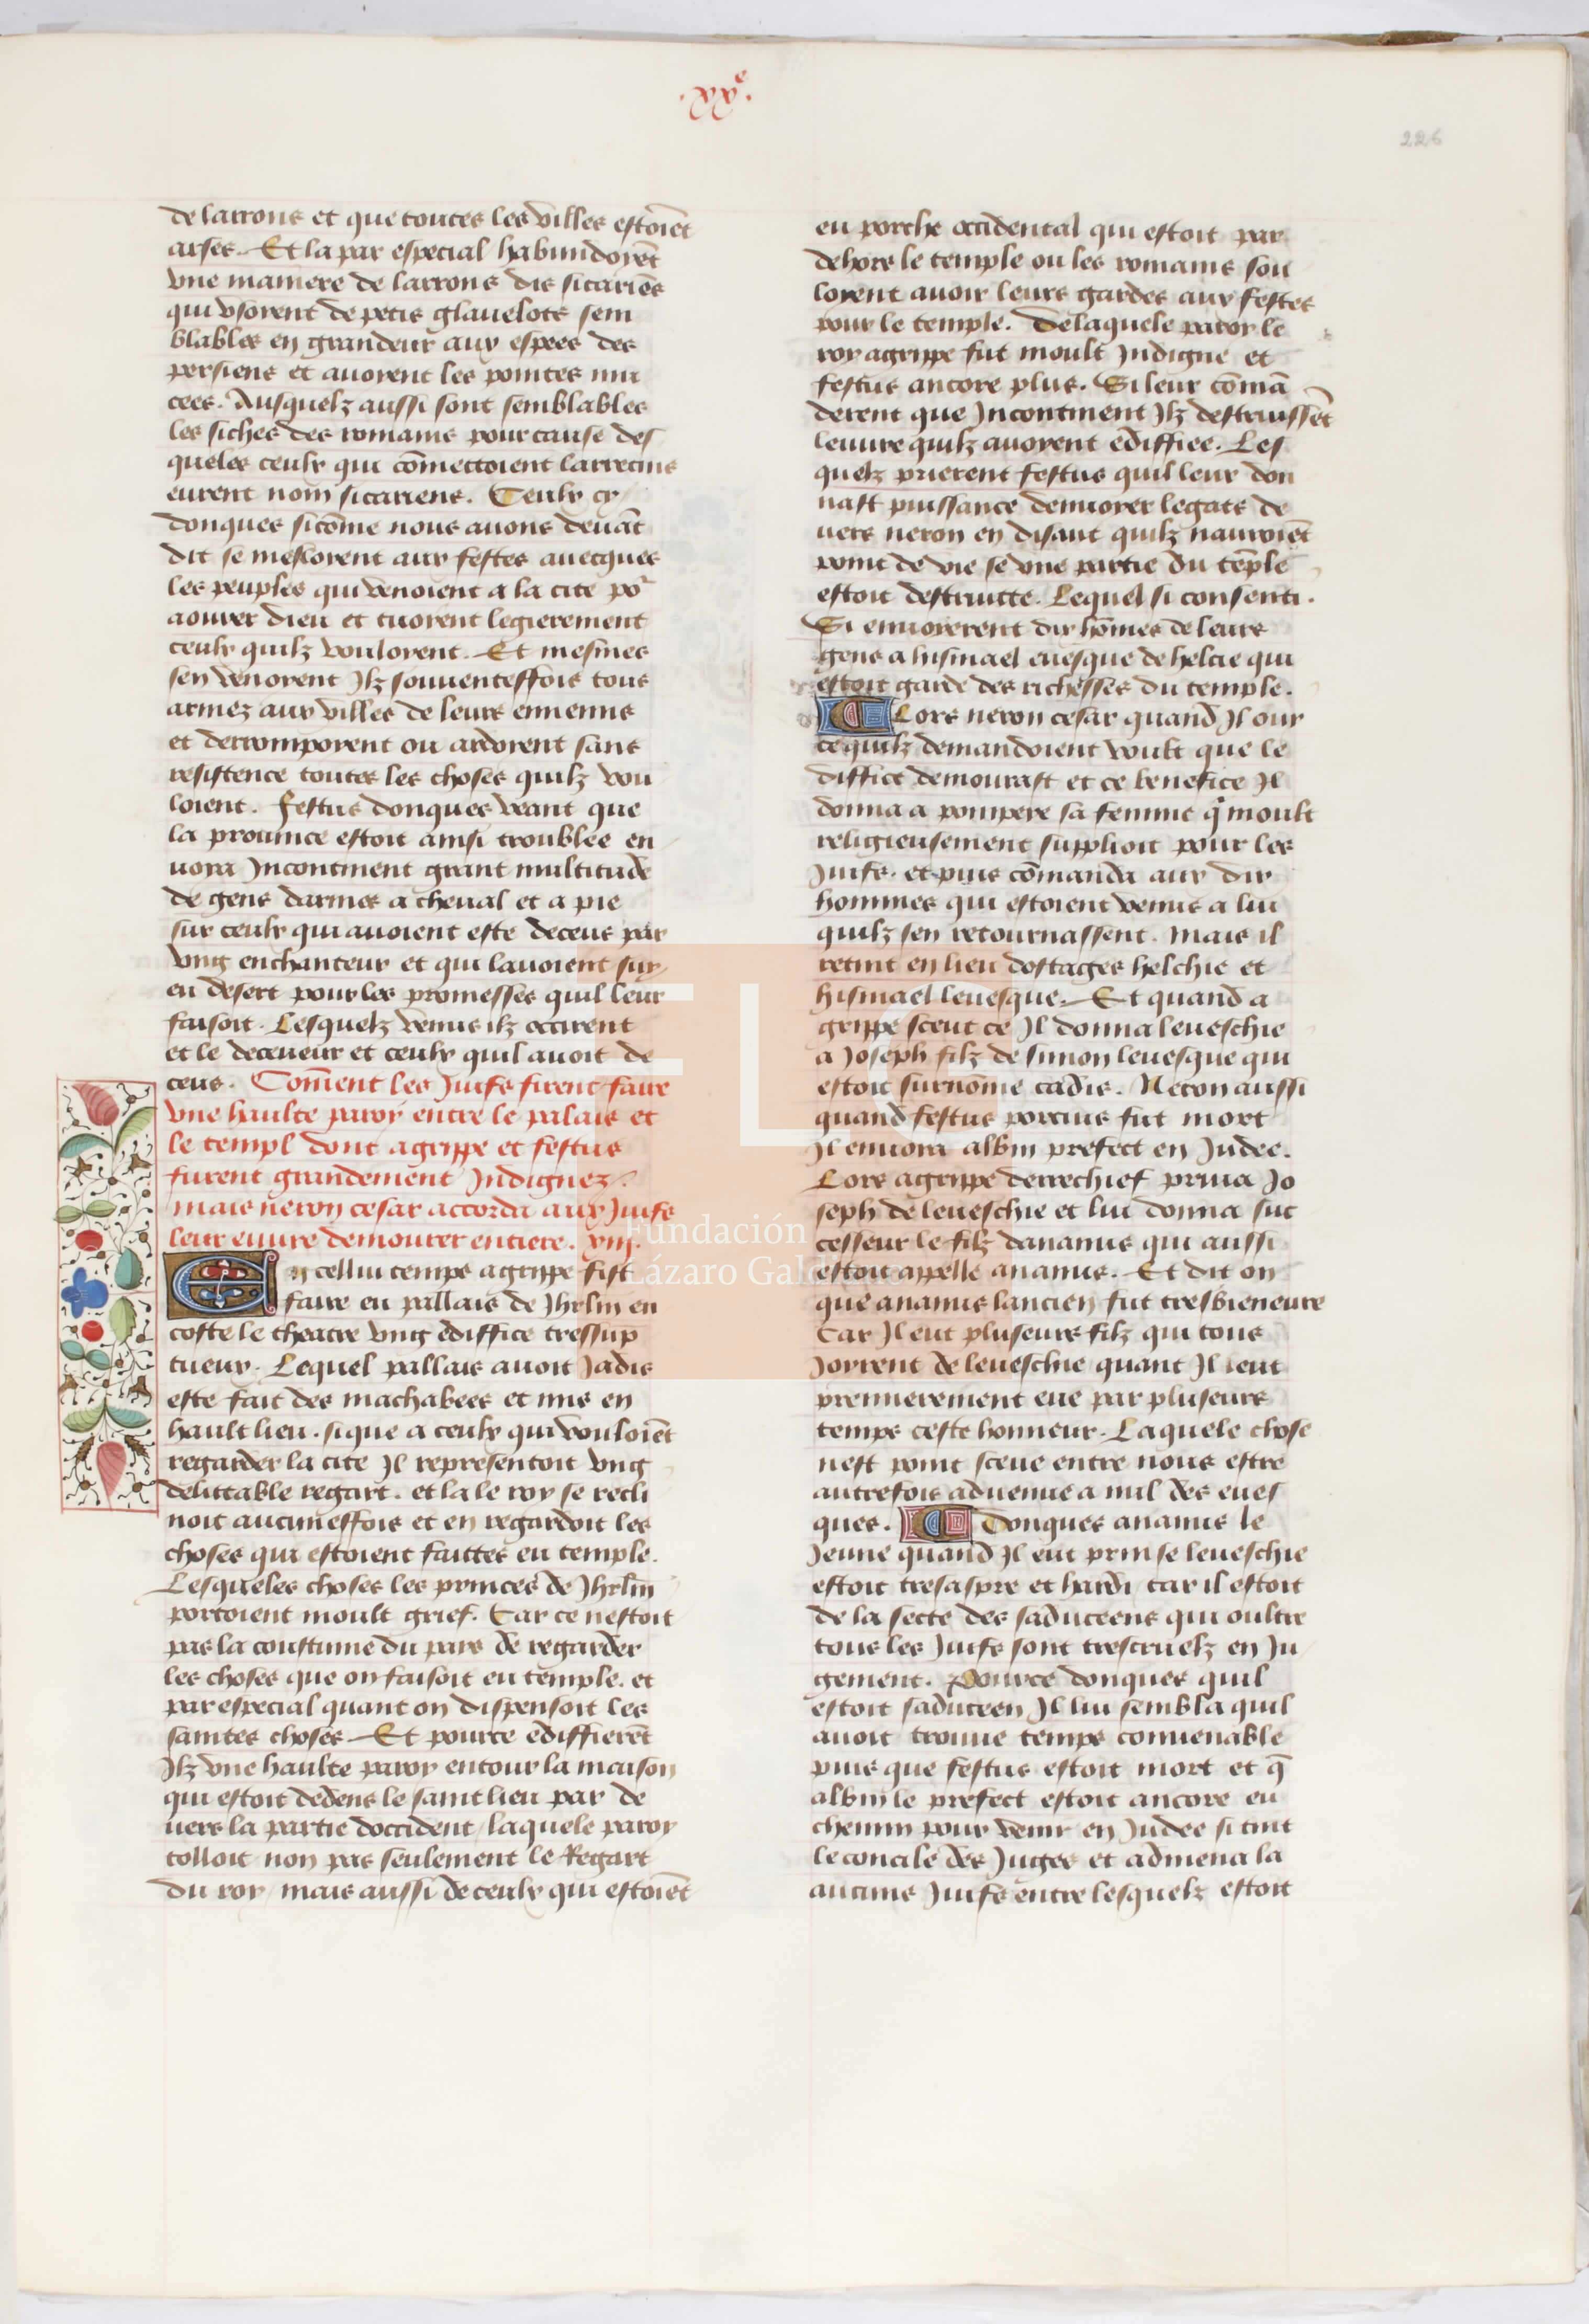 .xxe.
226
de larrons et que toutes les villes estoiẽt
arses. Et la par especial habundoyẽt
vne maniere de larrons dis sicariẽs
qui vsoient de petis glauelots sem
blables en grandeur aux espees des
persiens et auoyent les pointes
cees. Ausquelz aussi sont semblables
les siches des romains pour cause des
queles ceulx qui cõmettoient larrecins
eurent nom sicariens. Ceulx cy
donques sicõme nous auons deuãt
dit se mesloyent aux festes auecques
les peuples qui venoient a la cite por
aourer dieu et tuoyent legierement
ceulx quilz vouloyent. Et mesmes
sen venoyent Jlz souuenteffois tous
armez aux villes de leurs ennemis
et derrompoyent ou ardoyent sans
resistence toutes les choses quilz vou
loient. festus donques veant que
la prouince estoit ainsi troublee en
uoya Jncontinent grant multitude
de gens darmes a cheual et a pie
sur ceulx qui auoient este deceus par
vng enchanteur et qui lauoient suy
en desert pour les promesses quil leur
faisoit. Lesquelz venus ilz occirent
et le deceueur et ceulx quil auoit de
ceus. Com̃ent les Juifs firent faire
vne haulte paroy entre le palais et
le templ dont agrippe et festus
furent grandement Jndignez.
mais neron cesar accorda aux Juifs
leur euure demourer entiere. viij.
En cellui temps agrippe fist
faire eu pallais de Jhrlm en
coste le theatre vng ediffice tressup
tueux. Lequel pallais auoit Jadis
este fait des machabees et mis en
hault lieu. si que a ceulx qui vouloiẽt
regarder la cite Jl representoit vng
delittable regart. et la le roy se recli
noit aucuneffois et en regardoit les
choses qui estoient faittes eu temple.
Lesqueles choses les princes de Jhrlm̃
portoient moult grief. Car ce nestoit
pas la coustume du pais de regarder
les choses que on faisoit eu temple. et
par especial quant on dispensoit les
saintes choses. Et pource ediffierẽt
Jlz vne haulte paroy entour la maison
qui estoit dedens le saint lieu par de
uers la partie doccident / laquele paroy
tolloit non pas seulement le Regart
du roy / mais aussi de ceulx qui estoiẽt
eu porche occidental qui estoit par
dehors le temple ou les romains sou
loyent auoir leurs gardes aux festes
pour le temple. De laquele paroy le
roy agrippe fut moult Jndigne et
festus ancore plus. Si leur cõmã
derent que Jncontinent Jlz destruissẽt
leuure quilz auoyent ediffiee. Les
quelz prierent festus quil leur don
nast puissance denuoyer legats de
uers neron en disant quilz nauroiẽt
point de vie se vne partie du tẽple
estoit destruitte. Lequel si consenti.
Si enuoyerent dix hõmes de leurs
gens a hismael euesque de helcie qui
estoit garde des richesses du temple.
Lors neron cesar quand Jl ouy
ce quilz demandoient voult que le
diffice demourast et ce benefice Jl
donna a pompeye sa femme q̃ moult
religieusement supplioit pour les
Juifs. et puis cõmanda aux dix
hommes qui estoient venus a lui
quilz sen retournassent. Mais il
retint en lieu dostages helchie et
hismael leuesque. Et quand a
grippe sceut ce Jl donna leueschie
a Joseph filz de simon leuesque qui
estoit surnõme cadis. Neron aussi
quand festus porcius fut mort
Jl enuoya albin prefect en Judee.
Lors agrippe derrechief priua Jo
seph de leueschie et lui donna suc
cesseur le filz dananus qui aussi
estoit appelle ananus. Et dit on
que ananus lancien fut tresbieneure
Car Jl eut pluseurs filz qui tous
Joyrent de leueschie quant Jl leut
premierement eue par pluseurs
temps ceste honneur. Laquele chose
nest point sceue entre nous estre
autresfois aduenue a nul des eues
ques. Donques ananus le
Jeune quand Jl eut prinse leueschie
estoit tresaspre et hardi car il estoit
de la secte des saduceens qui oultre
tous les Juifs sont trescruelz en Ju
gement. Pource donques quil
estoit saduceen Jl lui sembla quil
auoit trouue temps conuenable
puis que festus estoit mort et q̃
albin le prefect estoit ancore eu
chemin pour venir en Judee si tint
le concile des Juges et admena la
aucuns Juifs entre lesquelz estoit
FLG
Fundación
Lázaro Galdiano